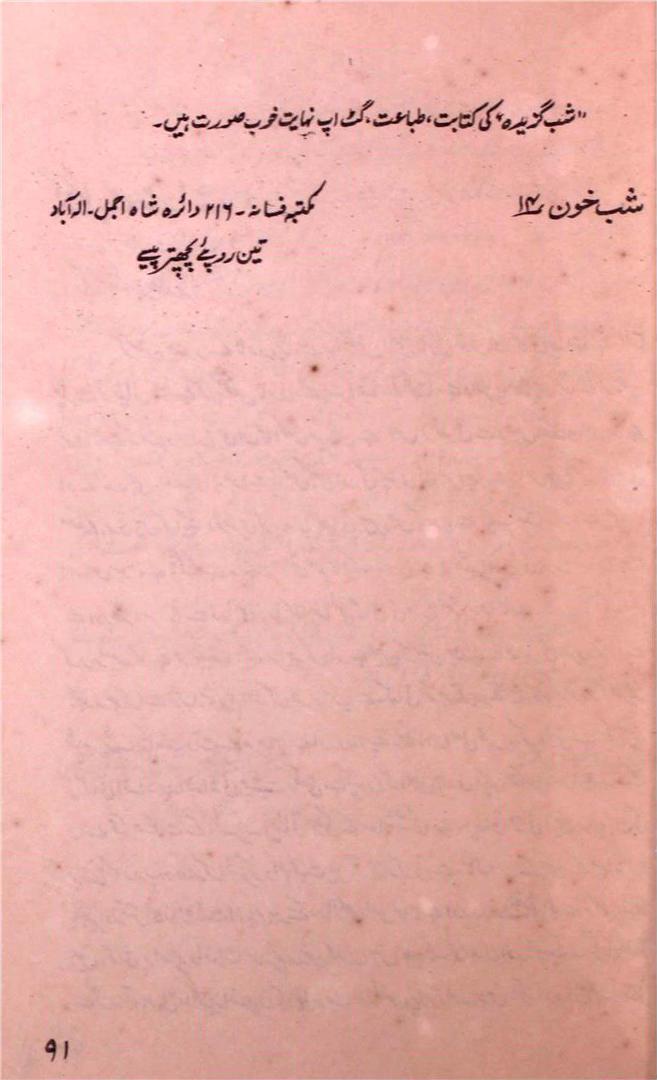 "شب گزیدہ" کی کتابت، طباعت، گٹ اپ نہایت خوب صورت ہیں۔
شب خون ۱۴؍ مکتبہ فسانہ - ۲۱۶ دائرہ شاہ اجمل - الہ آباد
تین روپئے پچھتر پیسے
۹۱